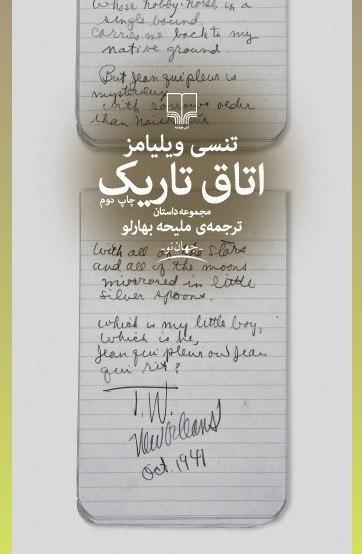 whose hobby-horse in a
single bound
carries me back to my
native ground.
But Jean qui pleur is
mysterious
with sorrows older
than
نشرچشمه
تنسی ویلیامز
اتاق تاریک
چاپ دوم
مجموعه داستان
ترجمه‌ی ملیحه بهارلو
جهان نو
with all of the stars
and all of the moons
mirrored in little
silver spoons.
which is my little boy,
which is he,
Jean qui pleur ou Jean
qui rit?
T.W.
New Orleans
Oct. 1941